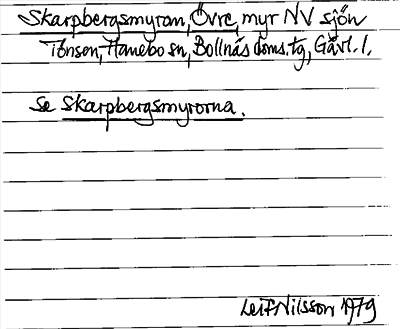 Skarpbergsmyran, Övre, myr NV sjön
Tönsen, Hanebo sn, Bollnäs doms.tg, Gävl. l.
Se Skarpbergsmyrorna.
Leif Nilsson 1979